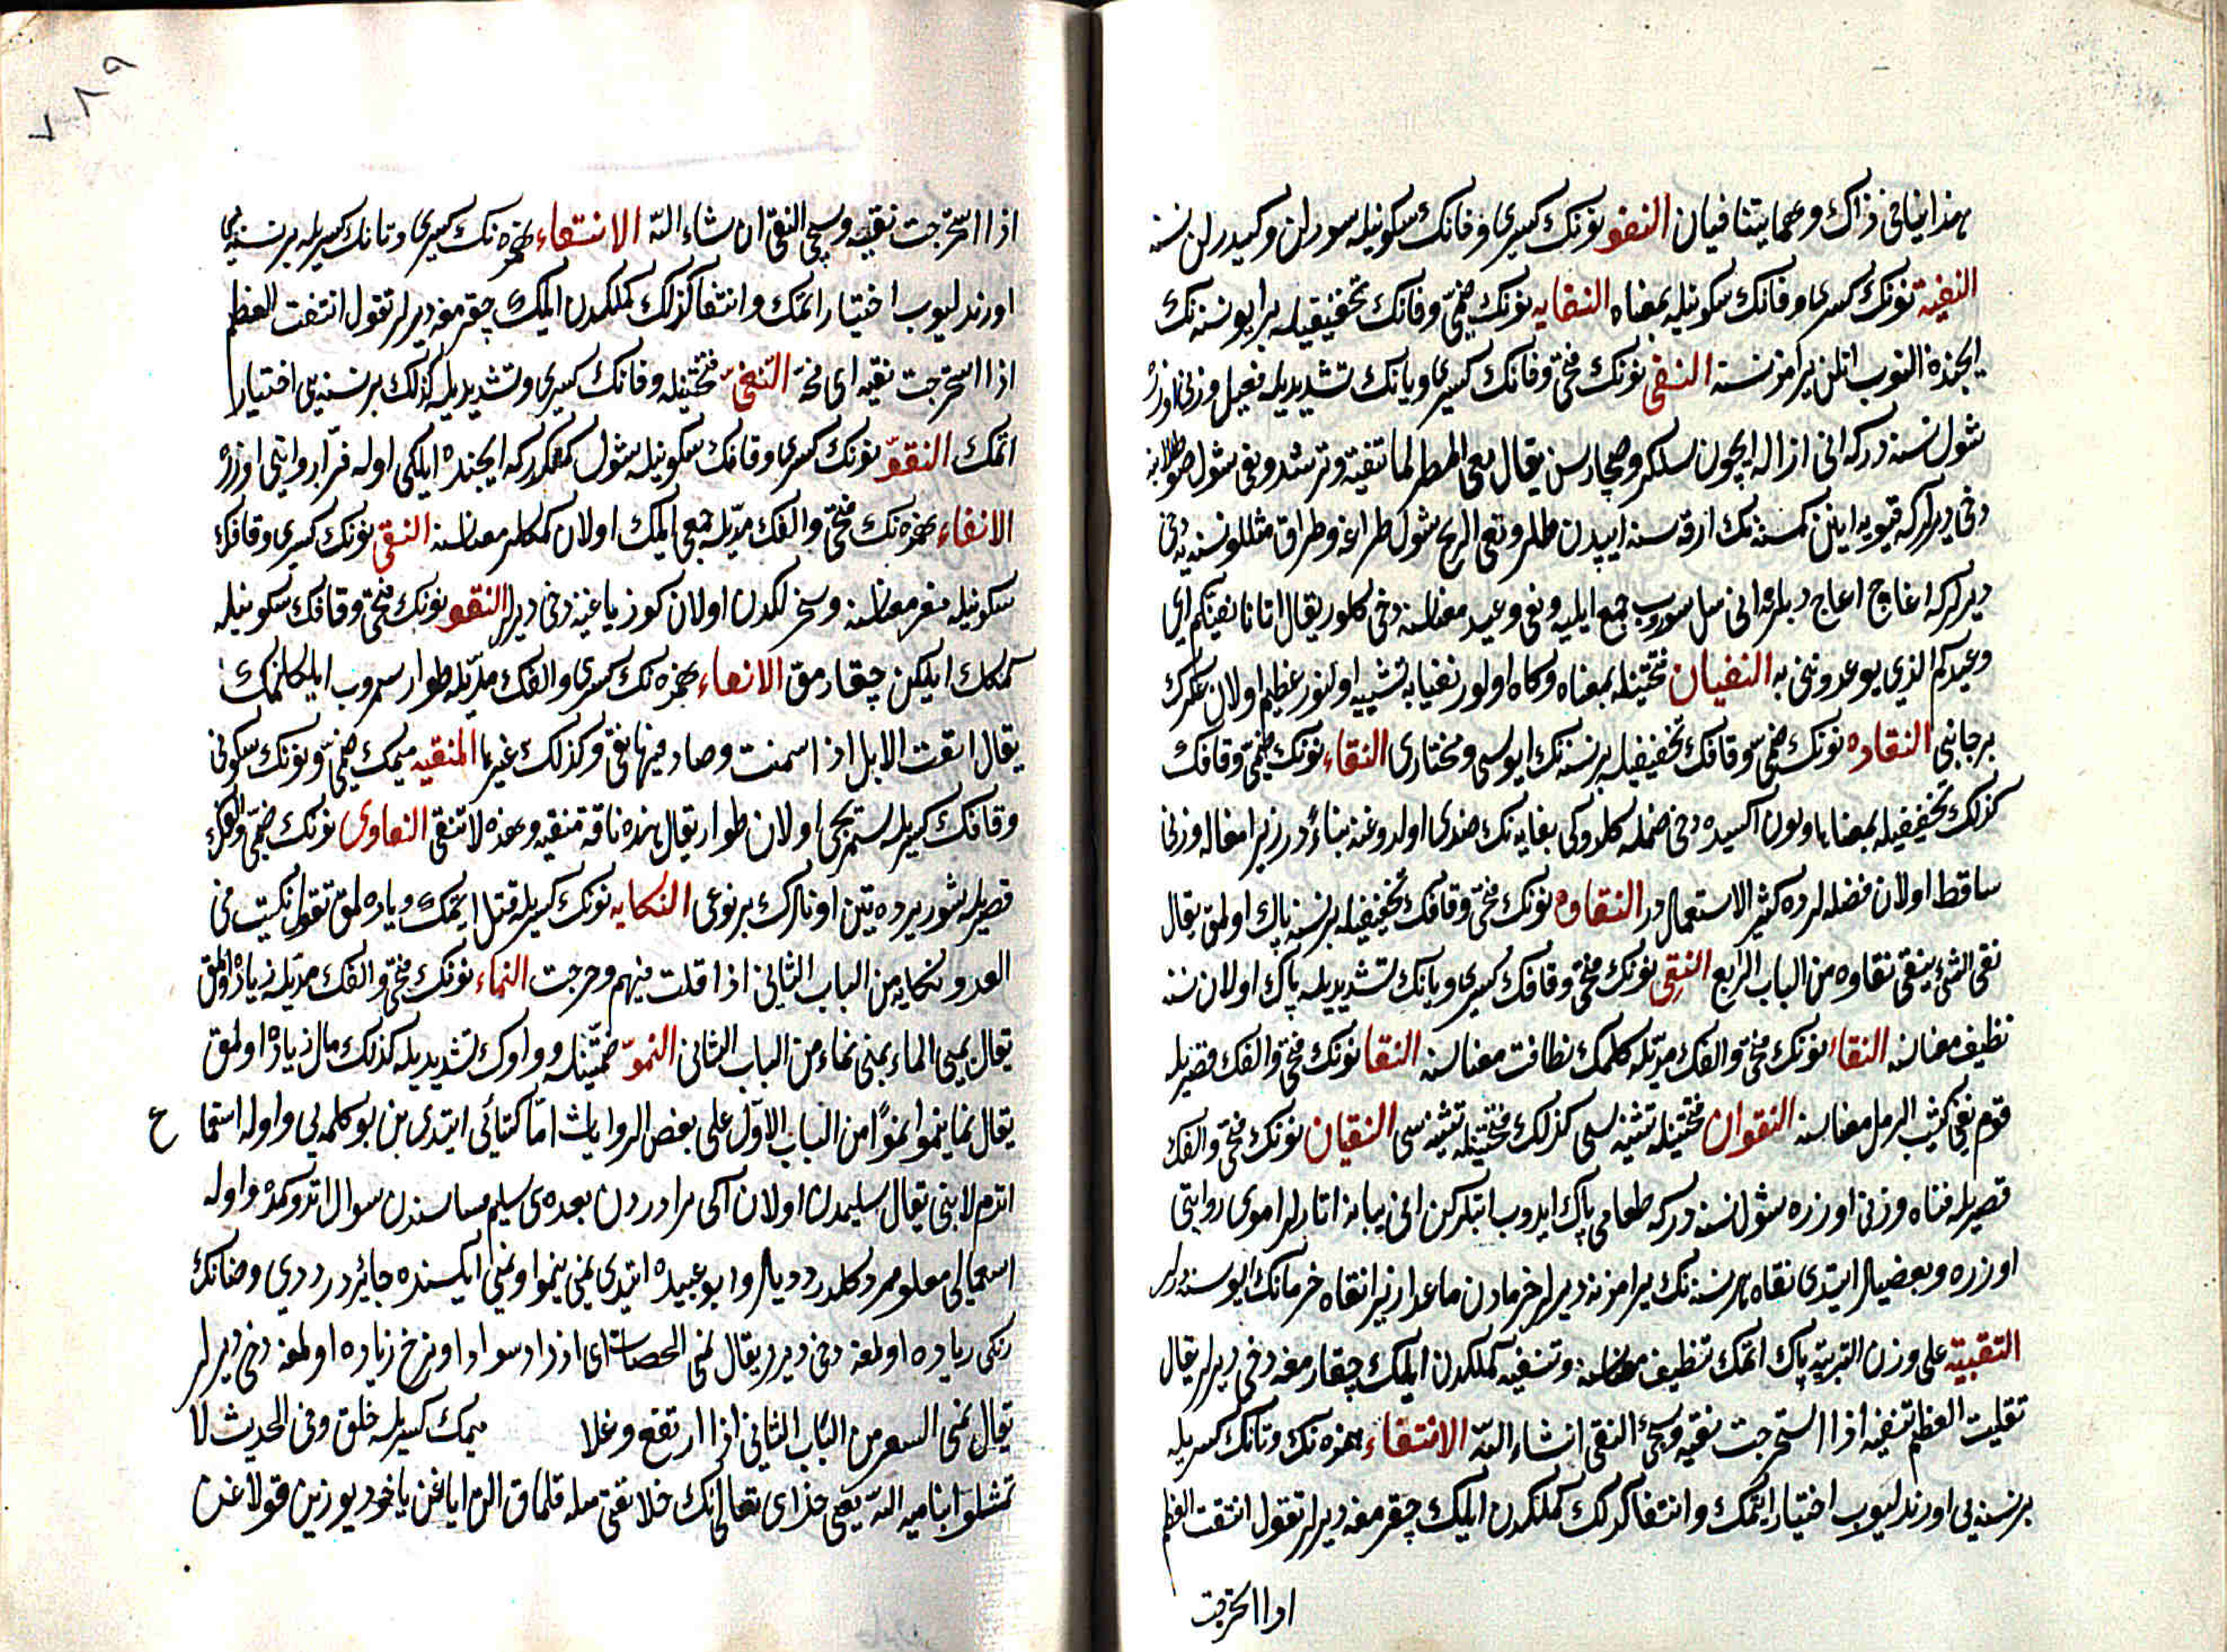 هذا ينافى ذاك وهما يتنافيان النفو نونك كسرى وفانك سكونيله سورلن وكيدرلن نسنه
النفية نونك كسرى وفانك سكونيله بمعناه النفايه نونك ضمى وفانك تخفيفيله برايو نسنه نك
ايچنده النوب اتلن يرامز نسنه النفى نونك فتحى وفانك كسرى ويانك تشديديله فعيل وزنى اوزره
شول نسنه دركه انى ازاله ايچون سلكر وصچارسن يقال نفى المطر لما تنفيه وترشه ونفى شول
دخى ديرلركه قيويه اينن كمسنه نك ارقه سنه ايپدن طملر ونفى الريح شول طراغه وطراق مثللو نسنه يه دخى
ديرلركه اغاج اغاج دبلرنه انى سوروب جمع ايليه ونفى وعيد معناسنه دخى كلور يقال اتانا نفيتكم اى
وعيدكم الذى يوعدوننى به النفيان فتحتيله بمعناه وكاه اولور نفيانه تشبيه اولنور عظيم اولان عسكرك
برجانبى النقاده نونك ضمى وقافك تخفيفيله برنسنه نك ايوسى ومختارى النقاء نونك ضمى وقافك
كذلك تخفيفيله بمعناها وبون اكسيده دخى ضمله كلدوكى نفايه نك ضدى اولدوغنه بناءً در زيرا فعاله وزنى
ساقط اولان فضله لرده كثير الاستعمال در النقاوه نونك فتحى وقافك تخفيفيله برنسنه پاك اولمق يقال
نقى الشئ ينقى نقاوه من الباب الرابع النقى نونك فتحى وقافك كسرى ويانك تشديديله پاك اولان نسنه
نظيف معناسنه النقاء نونك فتحى والفك مديله كلمك نظافت معناسنه النقا نونك فتحى والفك قصريله
قوم يعنى كثيب الرمل معناسنه النقوان فتحتيله تثنيه سى كذلك فتحتيله تثنيه سى النقيان نونك فتحى والفك
قصريله فناه وزنى اوزره شول نسنه دركه طعامى پاك ايدوب ايتلركن انى يبانه اتارلر اموى روايتى
اوزره وبعضيلر ايتدى نقاه هر نسنه نك يرامزنه ديرلر خرمادن ماعدا زيرا نقاه خرمانك ايوسنه ديرلر
التنقية على وزن التربية پاك اتمك تنظيف معناسنه وتنقيه كملكدن ايليك چقارمغه دخى ديرلر يقال
نقيت العظم تنقيه اذا استخرجت نقيه ويجئ النقى انشاء الله الانتقاء همزه نك وتانك كسريله
برنسنه يى اوزندليوب اختيار ايتمك وانتقا كذلك كملكدن ايليك چقرمغه ديرلر تقول انتقت العظم
اذا استخرجت
٧٨٩
اذا استخرجت نقيه وسيجى النقى ان شاء الله الانتقاء همزه نك كسرى وتانك كسريله برنسنه يى
اوزندليوب اختيار اتمك وانتقا كذلك كملكدن ايليك چقرمغه ديرلر تقول انتقت العظم
اذا استخرجت نقيه اى مخه النقى فتحتيله وقانك كسرى وتشديديله كذلك برنسنه يى اختيار
اتمك النقو نونك كسرى وقافك سكونيله شول كمكدركه ايچنده ايلكى اوله فرّا روايتى اوزره
الانقاء همزه نك فتحى والفك مديله جمعى ايلك اولان كمكلر معناسنه النقى نونك كسرى وقافك
سكونيله مغز معناسنه وسخر لكدن اولان كوز ياغنه دخى ديرلر النقو نونك فتحى وقافك سكونيله
كمكك ايلكن چقارمق الانقاء همزه نك كسرى والفك مديله طوار سمروب ايلكلنمك
يقال انقت الابل اذا اسمنت وصار فيها نقى وكذلك غيرها المنقيه ميمك ضمى ونونك سكونى
وقافك كسريله سمزجى اولان طوار يقال هذه ناقة منقيه وهذه لا تنقى النقاوى نونك ضمى والفك
قصريله شور يرده بتن اوتلرك برنوعى النكايه نونك كسريله قتل ايتمك وياره لمق تقول نكيت فى
العدو نكايه من الباب الثانى اذا قتلت فيهم وجرحت النماء نونك فتحى والفك مديله زياده اولمق
يقال نمى الماء ينمى نماء من الباب الثانى النمو ضمتيله وواوك تشديديله كذلك مال زياده اولمق
يقال نما ينموا نموًا من الباب الاول على بعض الروايات امّا كسائى ايتدى بن بو كلمه يى واوله استما ع
اتدم لا بنى يقال سليمدن اولان آكى برادردن بعده بنى سليم جماعتسندن سوال اتدوكمده واوله
استعمالى معلوملرى دكلدر ديديلر وابو عبيده ايتدى نمى ينموا وينمى ايكسنده جائزدر ديدى وخضانك
رنكى زياده اولمغه دخى ديرلر يقال نمى الخضاب اى ازداد سوادا ونرخ زياده اولمغه دخى ديرلر
يقال نمى السعر من الباب الثانى اذا ارتفع وغلا ميمك كسريله خلق وفى الحديث لا
تمثلوا بنامية الله يعنى خداى تعالى نك خلايقنى مثله قلماق الن اياغن ياخود يوزين قولاغن